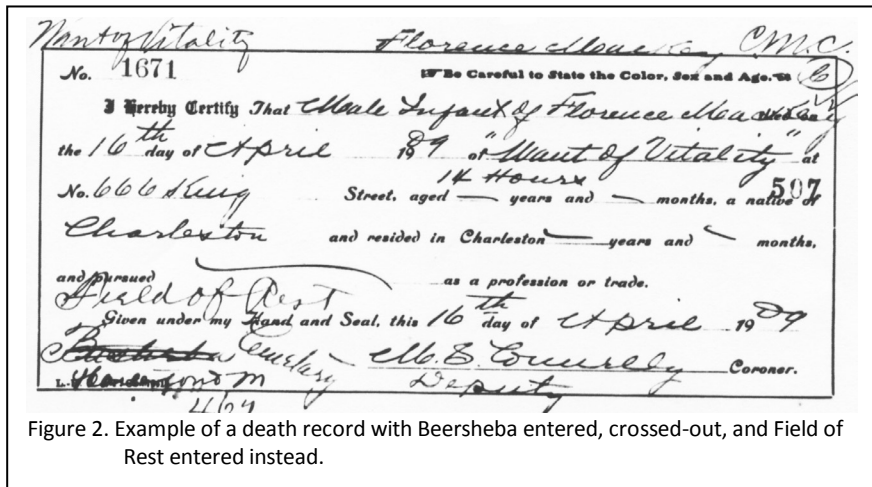 Want of Vitality Florence C.M.C.
No. 1671 Be Careful to State the Color, Sex and Age. C
I Hereby Certify That Male Infant of Florence died on
the 16th day of April 1909 of "Want of Vitality" at
14 Hours 507
No. 666 King Street, aged — years and — months, a native of
Charleston and resided in Charleston — years and — months,
and pursued as a profession or trade.
Field of Rest
Given under my Hand and Seal, this 16th day of April 1909
Cemetary M. E. Connelly Coroner.
L. Deputy
Figure 2. Example of a death record with Beersheba entered, crossed-out, and Field of
Rest entered instead.